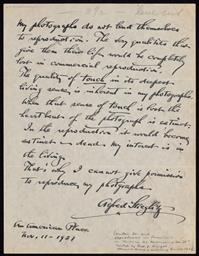 My photographs do not lend themselves
to reproduction. The very qualities that
give them their life would be completely
lost in commercial reproduction.
The quality of touch in its deepest
living sense is inherent in my photographs.
When that sense of touch is lost, the
heartbeat of the photograph is extinct.
In the reproduction it would become
extinct - dead. My interest is in
the living.
That is why I cannot give permission
to reproduce my photographs.
Alfred Stieglitz
An American Place
Nov. 11 - 1931